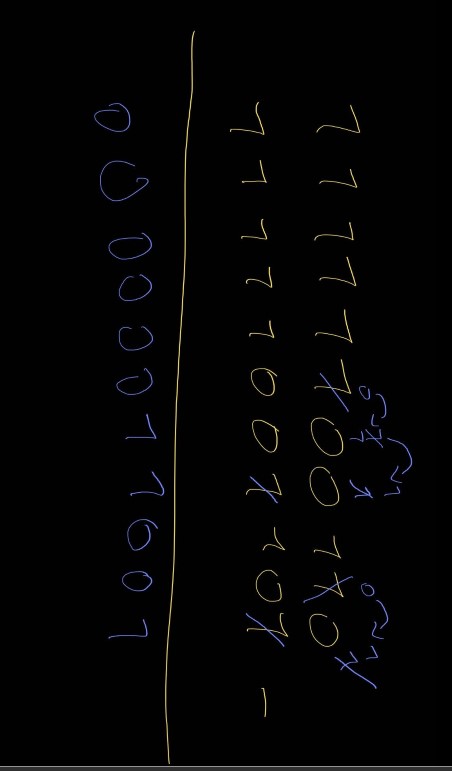 0 1 1
1 1 0 1
1
1 1 1 1 1 1 0 0 1 1 0
1 1 1 1 1 0 0 1 1 0 1 -
0 0 0 0 0 0 1 1 0 0 1